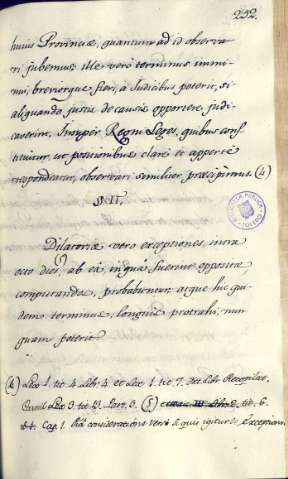 232.
huius Provinciæ, quantum ad id observa-
ri jubemus; ille vero terminus immi-
nui, breviorque fieri, à Judicibus poterit, si
aliquando justis de causis oportere judi-
caverint, Insuper Regni Leges, quibus cons-
tituitur, ut positionibus clarè et apperte
respondeatur, observari similiter, præcipimus. (4)
§. II.
Dilatoriæ vero exceptiones, intra
octo dies, ab ea in qua fuerint oppositæ,
computandos, probabuntur; atque hic qui-
dem terminus, longius protrahi, nun-
quam poterit
(4) Lex 1. tit. 4. Libr. 4. et Lex 1. tit. 7. Libr. Recopilat.
Lex 3. tit. 13. Part. 3. (5) tit. 6.
Cap. 1. consideratione vero si quis igitur Exceptionem
BIBLIOTECA PUBLICA
TOLEDO